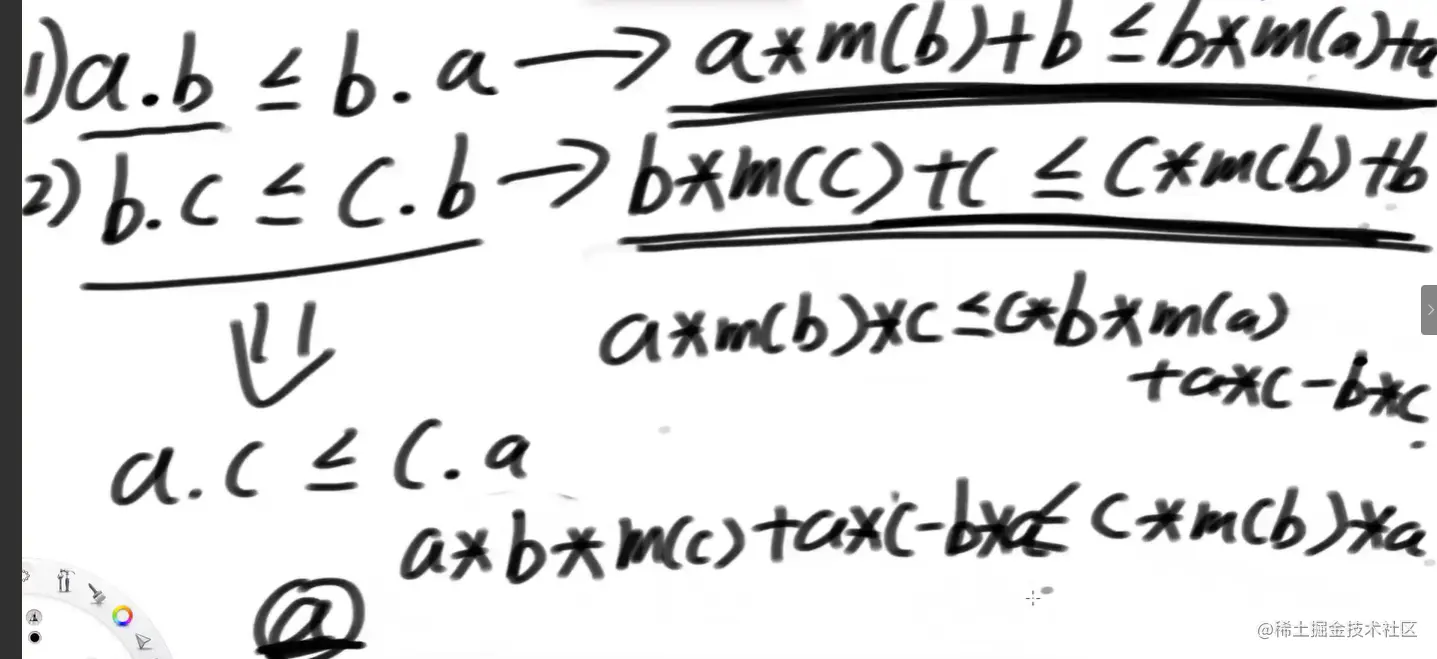 1) a.b ≤ b.a → a*m(b)+b ≤ b*m(a)+a
2) b.c ≤ c.b → b*m(c)+c ≤ c*m(b)+b
a*m(b)*c ≤ c*b*m(a)
+a*c-b*c
a.c ≤ c.a
a*b*m(c)+a*c-b*a ≤ c*m(b)*a
a
@稀土掘金技术社区